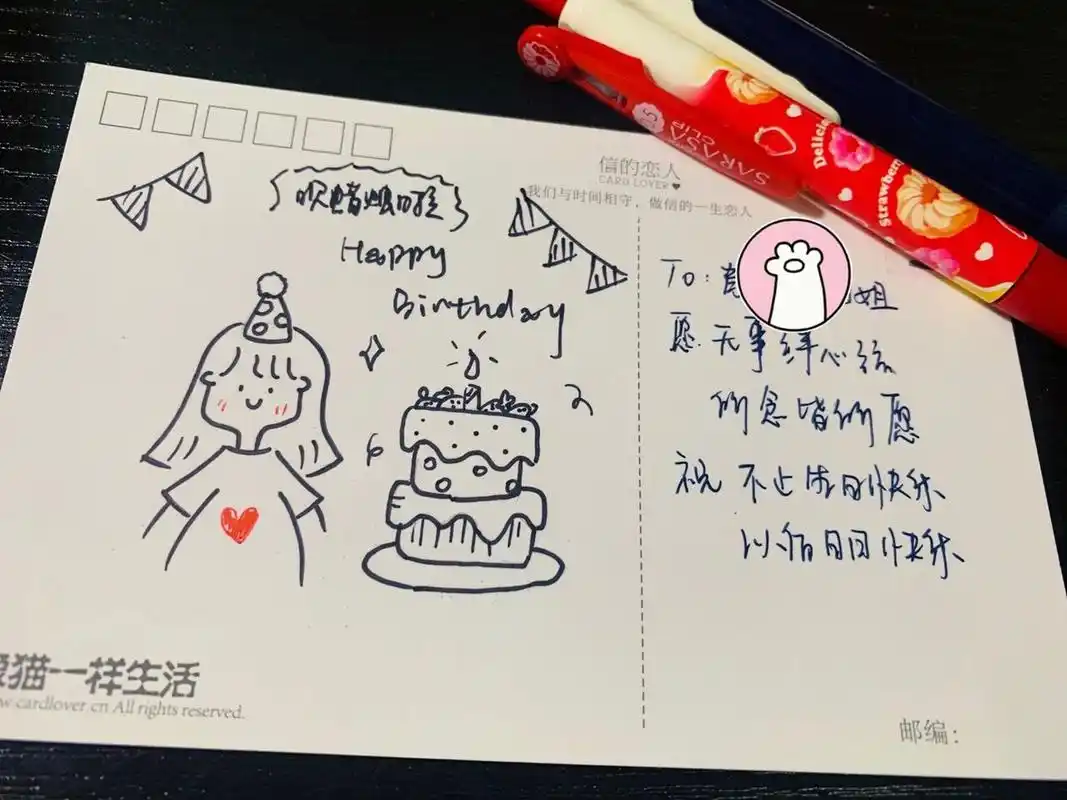 吹蜡烛啦
Happy
Birthday
信的恋人
CARD LOVER
我们与时间相守，做信的一生恋人
To: 姐
愿 无事绊心弦
所念皆所愿
祝 不止生日快乐
以后日日快乐
像猫一样生活
w.cardlover.cn All rights reserved.
邮编：
SARASA
CLIP
0.5
Delicio
Strawberr